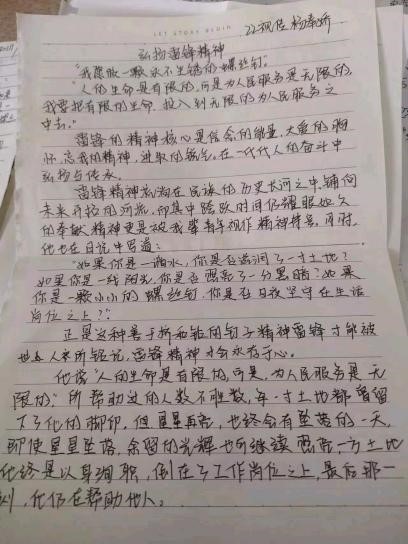 LET STORY BEGIN
22视传 杨奉娇
弘扬雷锋精神
"我愿做一颗永不生锈的螺丝钉。"
"人的生命是有限的,可是为人民服务是无限的,
我要把有限的生命,投入到无限的为人民服务之
中去。"
雷锋的精神核心是信念的能量,大爱的胸
怀,忘我的精神,进取的锐气。在一代代人的奋斗中
弘扬与传承。
雷锋精神流淌在民族的历史长河之中,铺向
未来开拓的河流,而其中跨跃时间仍耀眼她久
的奉献精神更是被我辈青年视作精神特景,同时,
他也在日记中写道:
"如果你是一滴水,你是否滋润了一寸土地?
如果你是一线阳光,你是否照亮了一分黑暗?如果
你是一颗小小的螺丝钉,你是否日夜坚守在生活
岗位之上?"
正是这种善于挤和钻的钉子精神雷锋才能被
世人所铭记,雷锋精神才会永存于心。
他说"人的生命是有限的,可是,为人民服务是无
限的。"所帮助过的人数不胜数,每一寸土地都留
下了他的脚印,但星星再亮,也终会有坠落的一天,
即使星星坠落,余留的光辉也可继续照亮一方土地
他终是以身殉职,倒在了工作岗位之上,最后那一
刻,他仍在帮助他人。